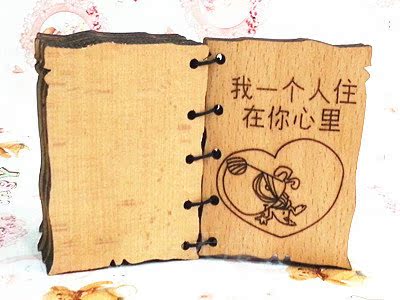 我一个人住
在你心里